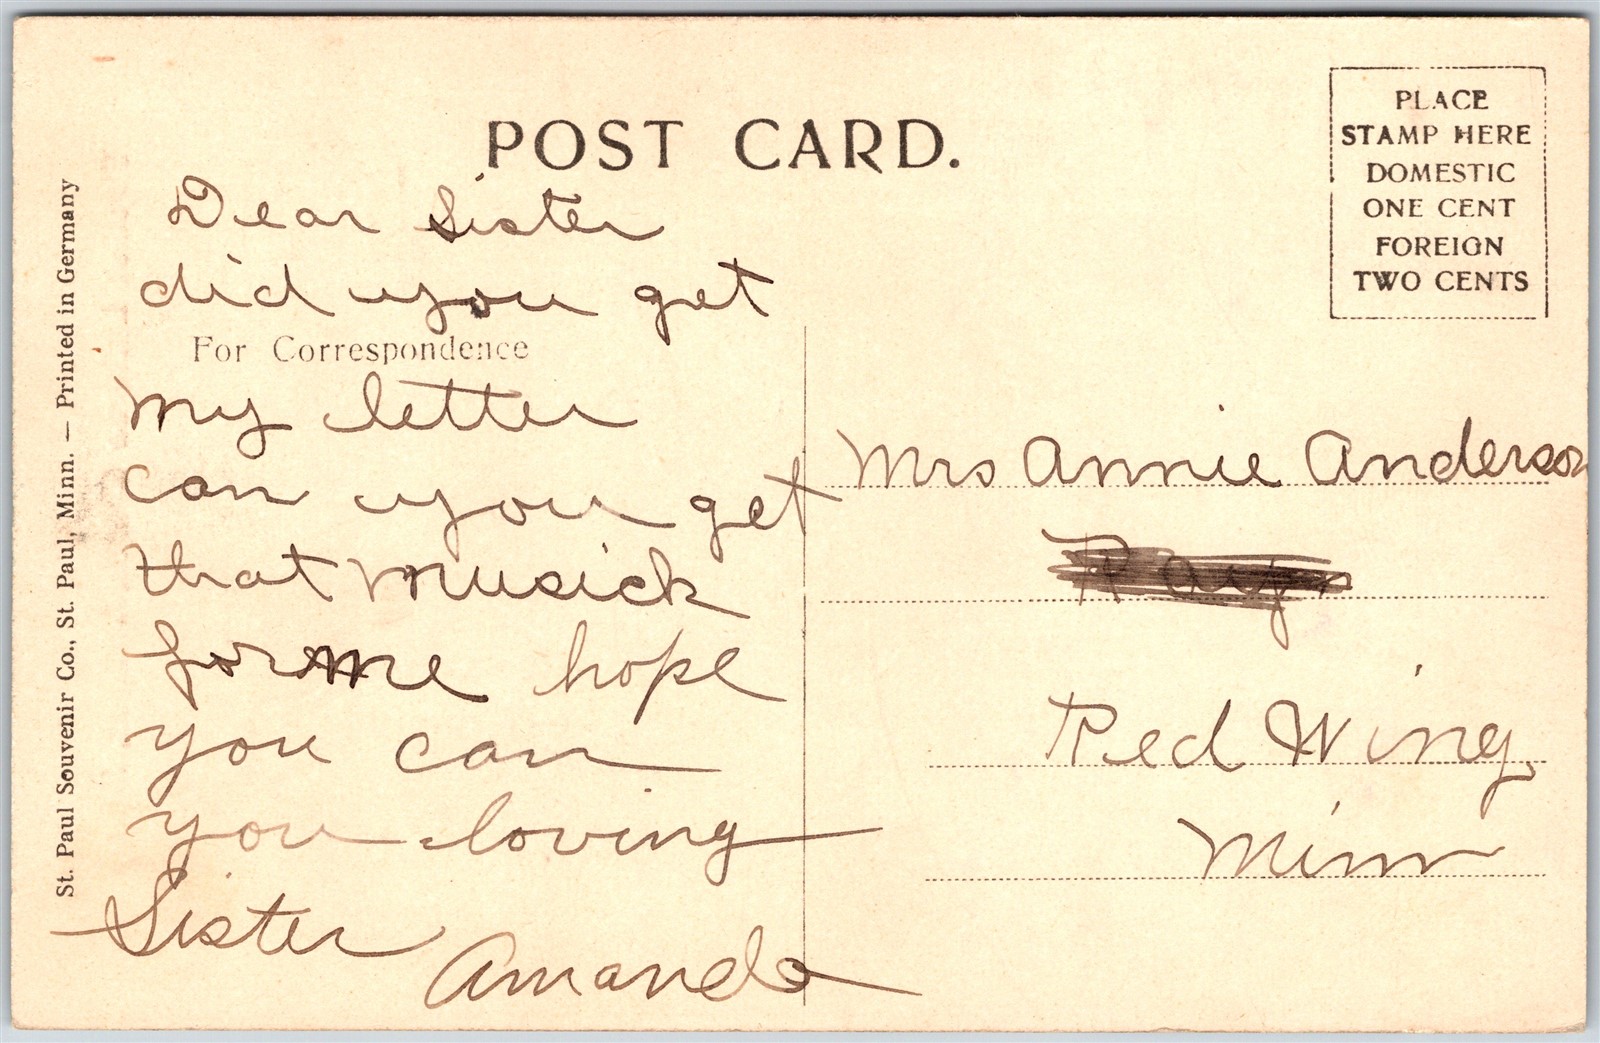 POST CARD.
PLACE
STAMP HERE
DOMESTIC
ONE CENT
FOREIGN
TWO CENTS
St. Paul Souvenir Co., St. Paul, Minn. — Printed in Germany
Dear Sister
did you get
For Correspondence
my letter
can you get
that musick
for me hope
you can
you loving
Sister
Amanda
Mrs Annie Anderson
Red Wing,
Minn